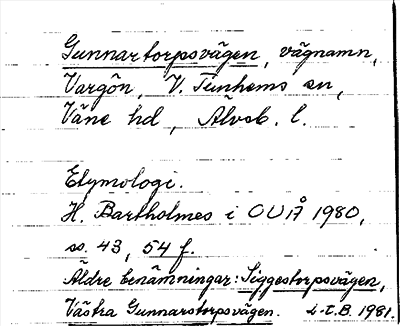 Gunnartorpsvägen, vägnamn,
Vargön, V. Tunhems sn,
Väne hd, Älvsb. l.
Etymologi.
H. Bartholmes i OUÅ 1980,
ss. 43, 54 f.
Äldre benämningar: Siggestorpsvägen,
Västra Gunnarstorpsvägen. 1981.